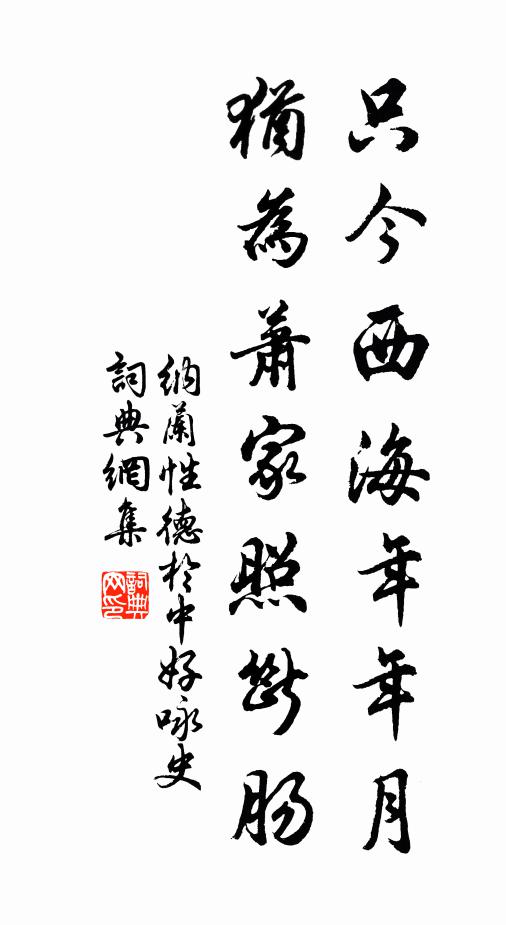 只今西海年年月
猶為蕭家照斷腸
納蘭性德於中好咏史
詞典網集
詞典網印